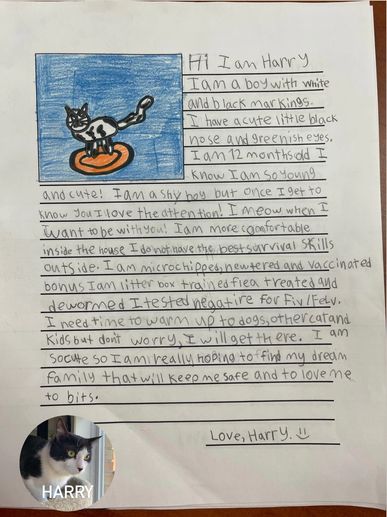 Hi I am Harry
I am a boy with white
and black markings.
I have a cute little black
nose and greenish eyes.
I am 12 months old I
know I am so young
and cute! I am a shy boy but once I get to
know you I love the attention! I meow when I
want to be with you! I am more comfortable
inside the house I do not have the best survival skills
outside. I am microchipped, newtered and vaccinated
bonus I am litter box trained flea treated and
dewormed I tested negative for Fiv/Felv.
I need time to warm up to dogs, other cat and
kids but dont worry, I will get there. I am
so cute so I am really hoping to find my dream
family that will keep me safe and to love me
to bits.
Love, Harry. :)
HARRY